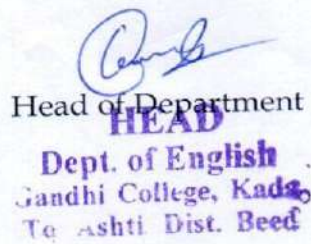 Head of Department
HEAD
Dept. of English
Gandhi College, Kada
Tq Ashti Dist. Beed